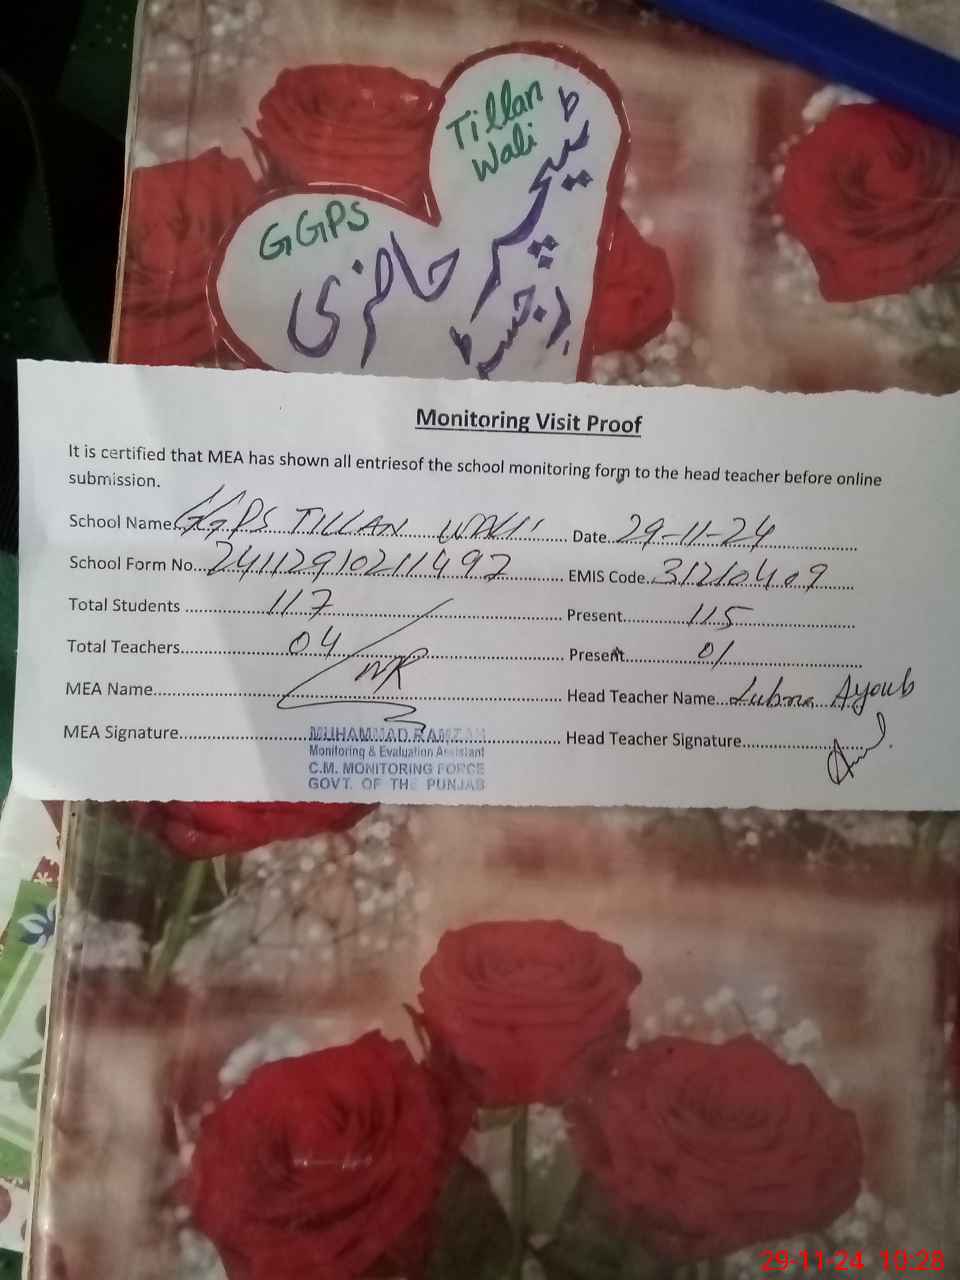 Tillan
Wali
GGPS
ٹیچر
حاضری
رجسٹر
Monitoring Visit Proof
It is certified that MEA has shown all entriesof the school monitoring form to the head teacher before online
submission.
School Name GGPS TILLAN WALI Date 29-11-24
School Form No 24112910211497 EMIS Code 31210409
Total Students 117 Present 115
Total Teachers 04 Present 01
MEA Name MR Head Teacher Name Lubna Ayoub
MEA Signature Head Teacher Signature
MUHAMMAD RAMZAN
Monitoring & Evaluation Assistant
C.M. MONITORING FORCE
GOVT. OF THE PUNJAB
29-11-24 10:28